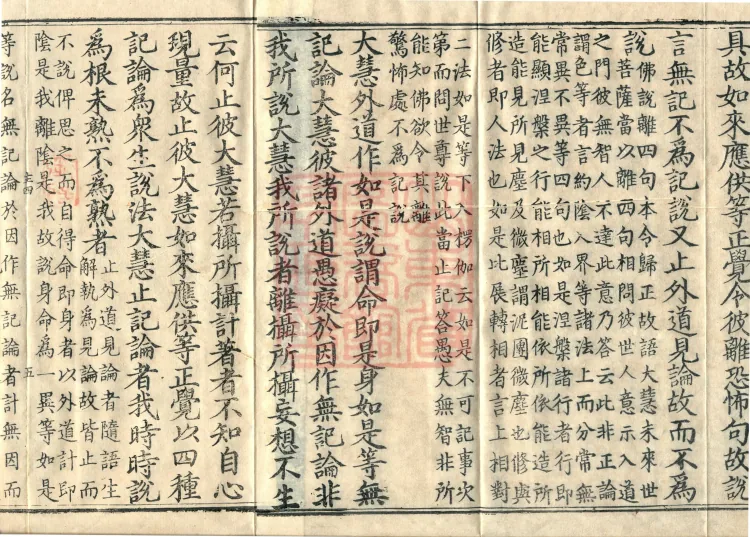 具故如來應供等正覺令彼離恐怖句故說
言無記不為記說又止外道見論故而不為
說佛說離四句本令歸正故語大慧未來世
菩薩當以離四句相問彼世人意示入道
之門彼無智人不達此意乃答云此非正論
謂色等者言約陰入界等諸法上而分常無
常異不異等四句也如是涅槃諸行者行即
能顯涅槃之行能相所相能依所依能造所
造能見所見塵及微塵謂泥團微塵也修與
修者即人法也如是比展轉相者言上相對
二法如是等下入楞伽云如是不可記事次
第而問世尊說此當止記答愚夫無智非所
能知佛欲令其離
驚怖處不為記說
大慧外道作如是說謂命即是身如是等無
記論大慧彼諸外道愚癡於因作無記論非
我所說大慧我所說者離攝所攝妄想不生
云何止彼大慧若攝所攝計著者不知自心
現量故止彼大慧如來應供等正覺以四種
記論為眾生說法大慧止記論者我時時說
為根未熟不為熟者
止外道見論者隨語生
解執為見論故皆止而
不說俾思之而自得命即身者以外道計即
陰是我離陰是我故說身命為一異等如是
五
等說名無記論於因作無記論者計無因而